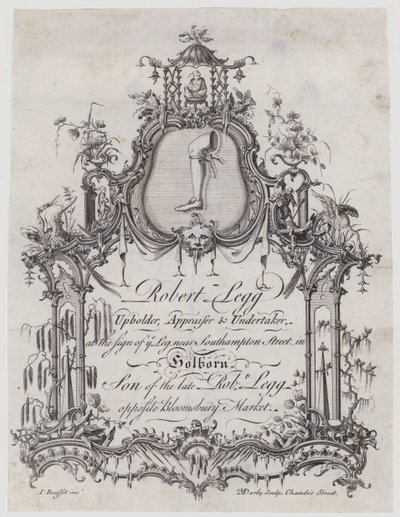 Robert Legg
Upholder, Appraiser & Undertaker,
at the sign of yᵉ Leg near Southampton Street, in
Holborn
Son of the late Robᵗ. Legg
opposite Bloomsbury Market.
Darly Sculp. Chandois Street.